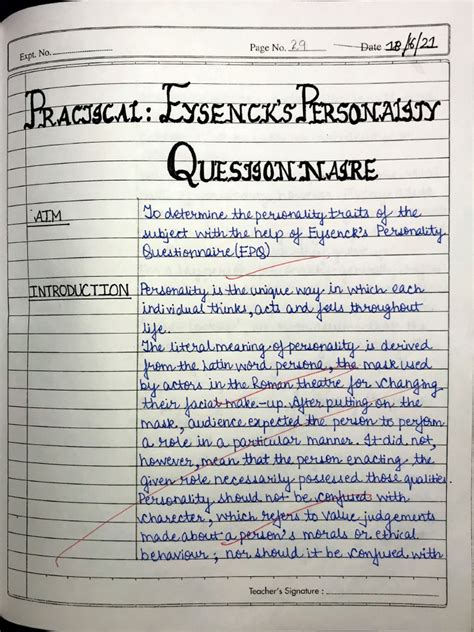 Expt. No.
Page No. 29
Date 18/6/21
PRACTICAL: EYSENCK'S PERSONALITY
QUESTIONNAIRE
AIM
To determine the personality traits of the
subject with the help of Eysenck's Personality
Questionnaire (EPQ)
INTRODUCTION
Personality is the unique way in which each
individual thinks, acts and feels throughout
life.
The literal meaning of personality is derived
from the Latin word persona, the mask used
by actors in the Roman theatre for changing
their facial make-up. After putting on the
mask, audience expected the person to perform
a role in a particular manner. It did not,
however, mean that the person enacting the
given role necessarily possessed those qualities.
Personality should not be confused with
charecter, which refers to value judgements
made about a person's morals or ethical
behaviour; nor should it be confused with
Teacher's Signature :